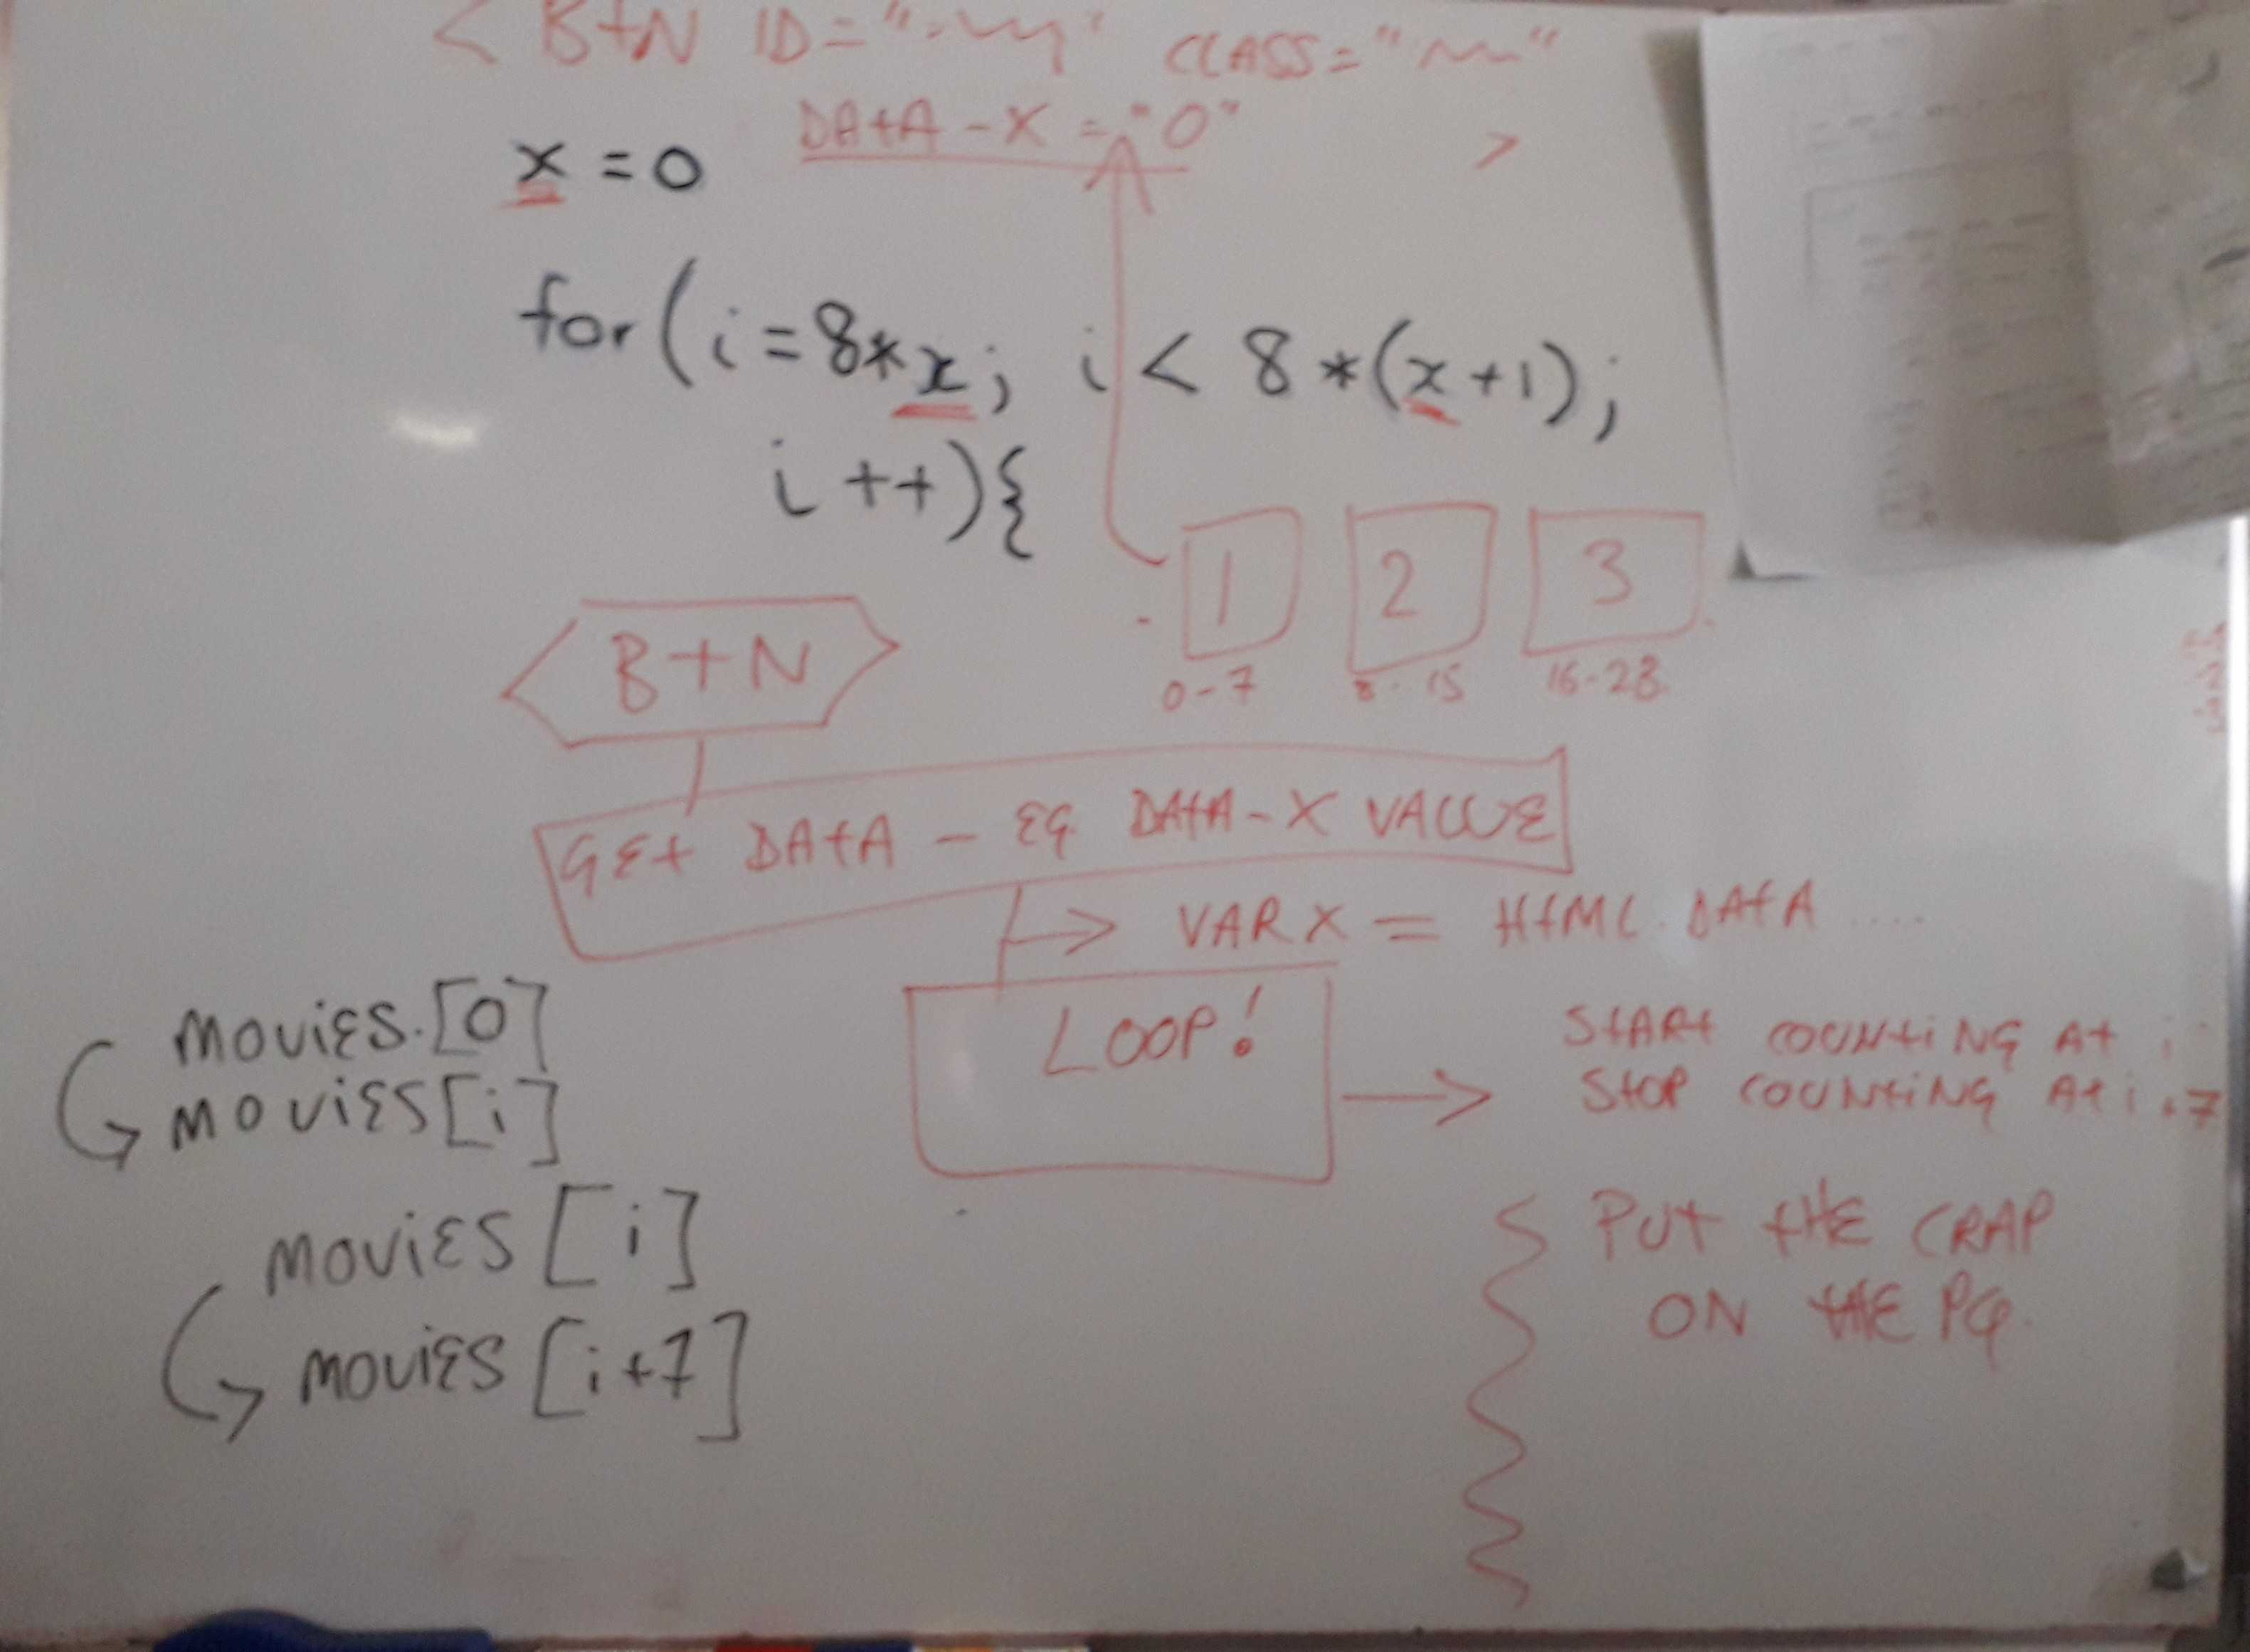 < B+N ID=" " CLASS=" "
DATA-X="0" >
x=0
for(i=8*x; i < 8*(x+1);
i++){
1 2 3
0-7 8-15 16-23
B+N
GET DATA - EG DATA-X VALUE
VAR X = HTML.DATA ....
LOOP!
START COUNTING AT i
STOP COUNTING AT i+7
PUT THE CRAP
ON THE PG.
MOVIES.[0]
MOVIES[i]
MOVIES[i]
MOVIES[i+7]